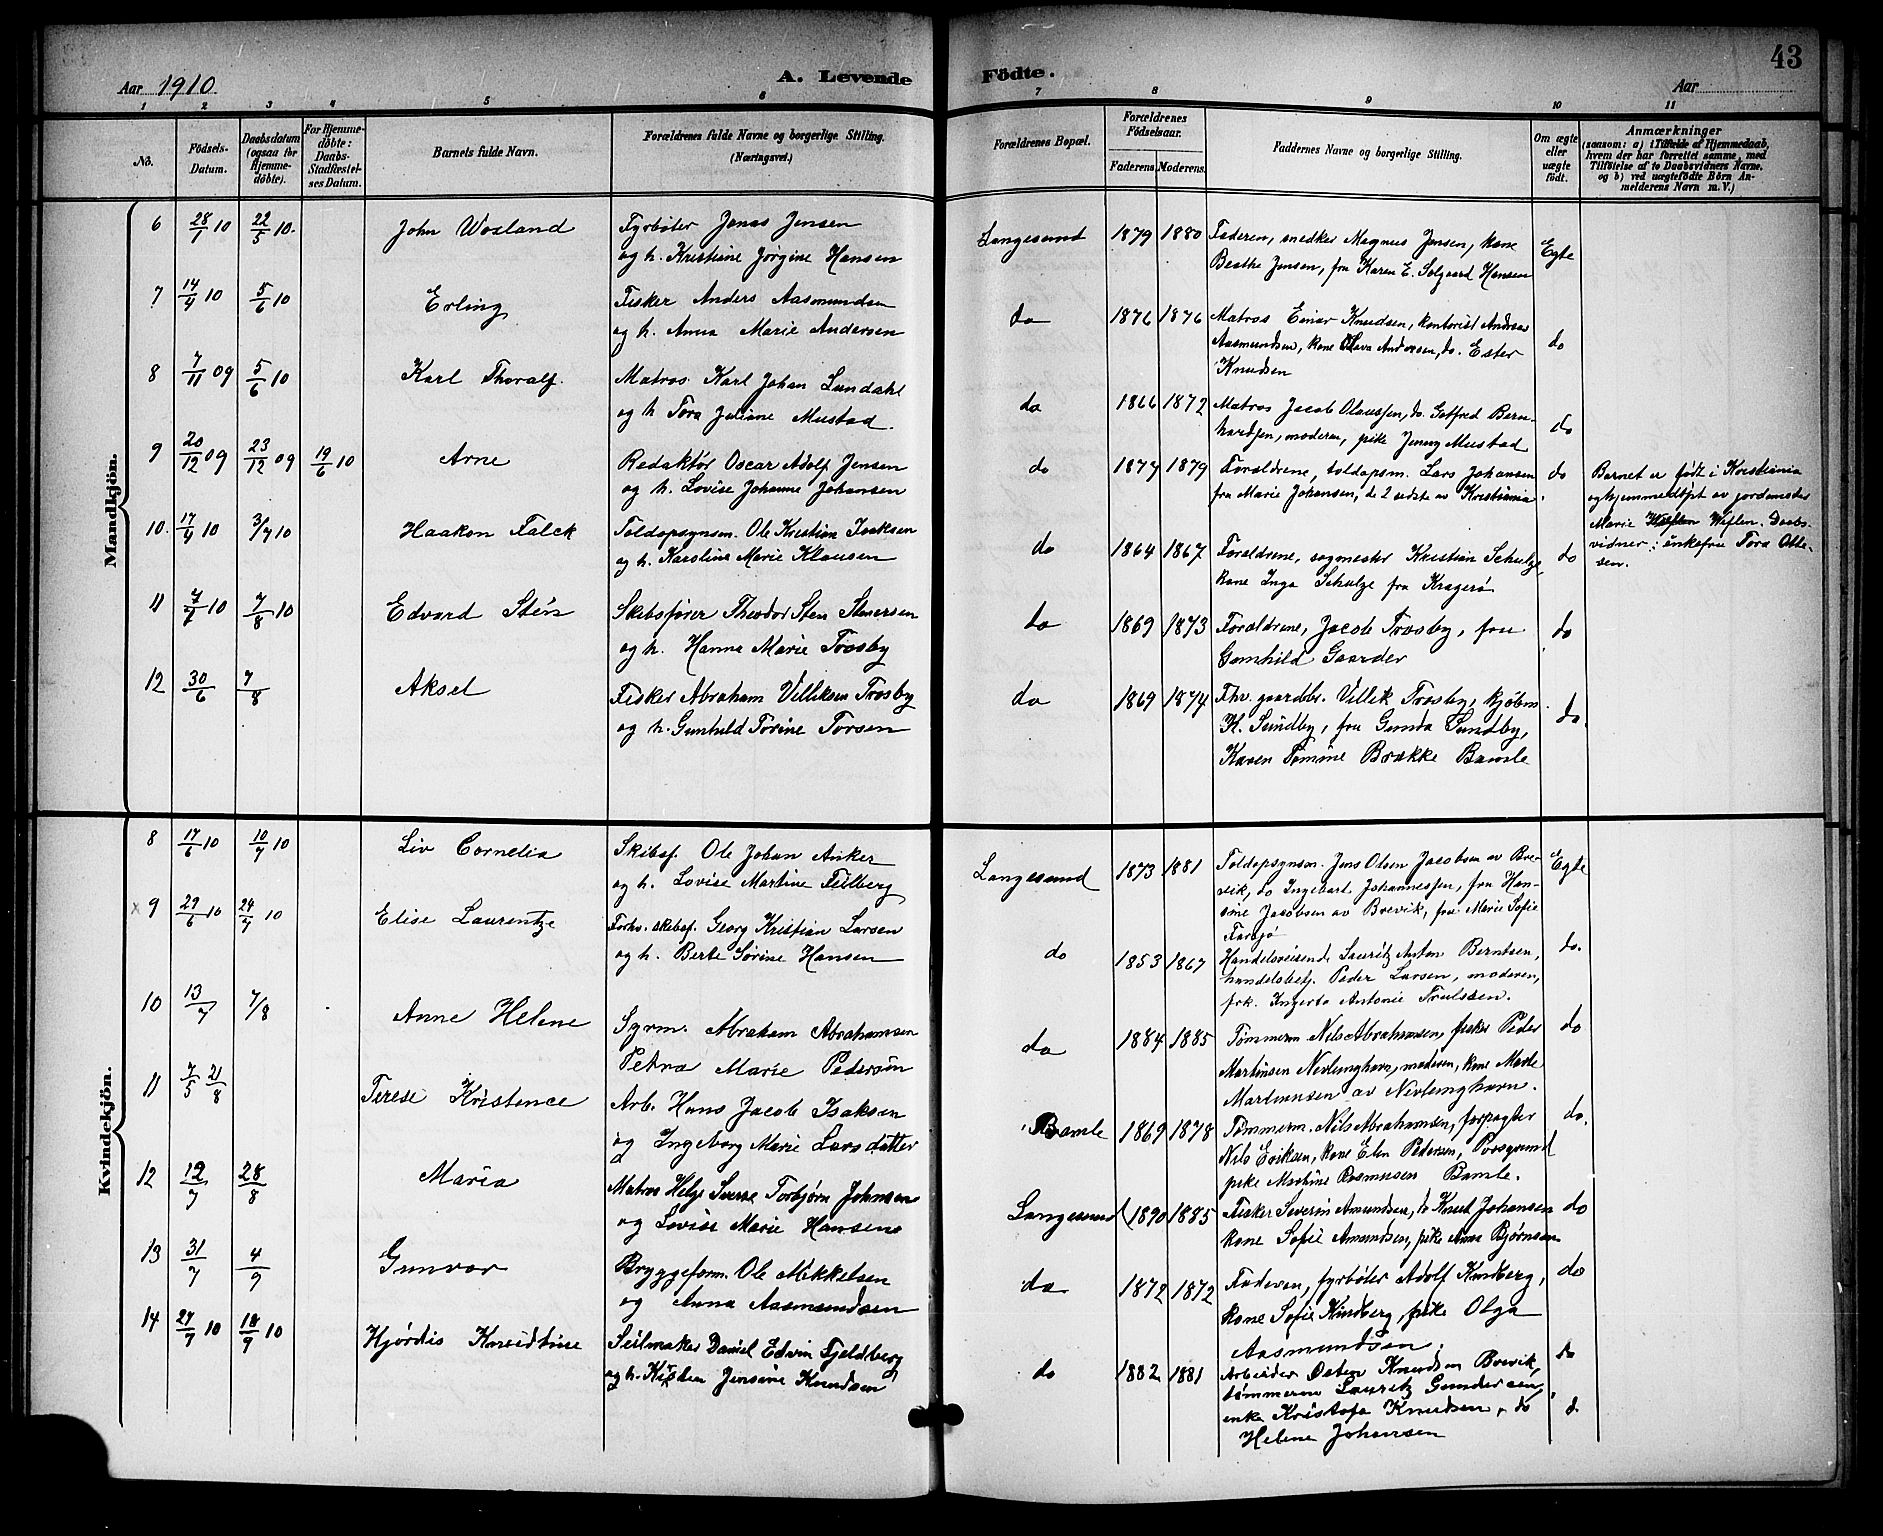 43
Aar 1910
A. Levende Födte.
Aar
1 2 3 4 5 6 7 8 9 10 11
No.
Födsels-Datum.
Daabsdatum (ogsaa for Hjemme-döbte).
For Hjemme-döbte: Daabs-Stadfæstel-ses Datum.
Barnets fulde Navn.
Forældrenes fulde Navne og borgerlige Stilling.
(Næringsvei.)
Forældrenes Bopæl.
Forældrenes Födselsaar.
Faderens Moderens
Faddernes Navne og borgerlige Stilling.
Om ægte eller uægte födt.
Anmærkninger
(saasom: a) i Tilfælde af Hjemmedaab,
hvem der har forrettet samme, med
Tilföielse af to Daabsvidners Navne,
og b) ved uægtefödte Börn An-
melderens Navn m. V.)
Mandkjön.
6 28/1 10 22/5 10. John Wosland Fyrbøter Jonas Jensen
og h. Kristine Jørgine Hansen
Langesund 1879 1880 Faderen, snedker Magnus Jensen, kone
Beathe Jensen, frk Karen E. Solgaard Hansen
Egte
7 14/4 10 5/6 10 Erling Fisker Anders Aasmundsen
og h. Anna Marie Andersen
do 1876 1876 Matros Einar Knudsen, kontorist Andreas
Aasmundsen, kone Olava Andersen, do. Ester
Knudsen
do
8 7/11 09 5/6 10 Karl Thoralf. Matros Karl Johan Lundahl
og h Tora Juliane Mustad.
do 1866 1872 Matros Jacob Olaussen, do. Gotfred Bern-
hardsen, moderen, pike Jenny Mustad
do
9 20/12 09 23/12 09 19/6 10 Arne Redaktør Oscar Adolf Jensen
og h. Lovise Johanne Johansen
do 1877 1879 Forældrene, toldopsm. Lars Johansen
fru Marie Johansen, de 2 sidste av Kristiania.
do
Barnet er født i Kristiania
og hjemmedøpt av jordemoder
Marie Wiflen. Daabs-
vidner: enkefru Tora Otte-
sen.
10. 17/4 10 3/7 10 Haakon Falck Toldopsynsm. Ole Kristian Isaksen
og h. Karoline Marie Klausen
do 1864 1867 Forældrene, sogmester Kristian Schulze,
kone Inga Schulze fra Kragerø
do
11 10 7/8 10 Edvard Stén Skibsfører Theodor Sten Stenersen
og h. Hanna Marie Trosby
do 1869 1873 Forældrene, Jacob Trosby, fru
Gunhild Gaarder
do
12 30/6 7/8 Aksel Fisker Abraham Villiksen Trosby
og h. Gunhild Torine Torsen
do 1869 1874 Fhv. gaardbr. Villik Trosby, kjøbm.
K. Sundby, fru Gunda Sundby,
Karen Tomine Brække Bamle
do.
Kvindekjön.
8 17/6 10 10/7 10 Liv Cornelia Skibsf. Ole Johan Anker
og h. Lovise Martine Feilberg
Langesund 1873 1881 Toldopsynsm. Jens Olsen Jacobsen av Bre-
vik, do Ingebart Johannessen, fru Han-
sine Jacobsen av Brevik, fru Marie Sofie
Farsjø
Egte
x 9 29/6 10 24/7 10 Elise Laurentze Forhv. skibsf. Georg Kristian Larsen
og h. Berte Sørine Hansen
do 1853 1867 Handelsreisend. Lauritz Anton Berntsen,
handelsbetj. Peder Larsen, moderen,
frk. Ingerta Antonie Trulssen.
do.
10 13/7 7/8 Anne Helene Syrm. Abraham Abrahamsen
Petra Marie Pedersen
do 1884 1885 Tømmerm Nils Abrahamsen, fisker Peder
Martinsen Nevlunghavn, moderen, kone Marte
Martinsen av Nevlunghavn.
do
11 7/5 21/8 Terese Kristence Arb. Hans Jacob Isaksen
og Ingeborg Marie Larsdatter
Bamle 1869 1878 Tømmerm. Nils Abrahamsen, forpagter
Nils Eriksen, kone Elen Pedersen, Porsgrund
pike Martine Rasmussen Bamle.
do.
12 12/7 28/8 Maria Matros Helge Sverre Torbjørn Johnsen
og Lovise Marie Hansen
Langesund 1890 1885 Fisker Severin Amundsen, do Knut Johansen
kone Sofie Amundsen, pike Anna Bjørnsen
do
13 31/7 4/9 Gunvor Bryggeform. Ole Mikkelsen
og Anna Aasmundsen
do 1872 1872 Faderen, fyrbøter Adolf Kindberg,
kone Sofie Kindberg, pike Olga
Aasmundsen.
do
14 27/7 10 18/9 10 Hjørdis Knridtine Seilmaker Daniel Edvin Fjeldberg
og h. Kirsten Jensine Knudsen
do 1882 1881 Arbeider Østen Knudsen Brevik,
tømmerm Lauritz Gundersen,
enke Kristofa Knudsen, do
Helene Johansen
do
d.